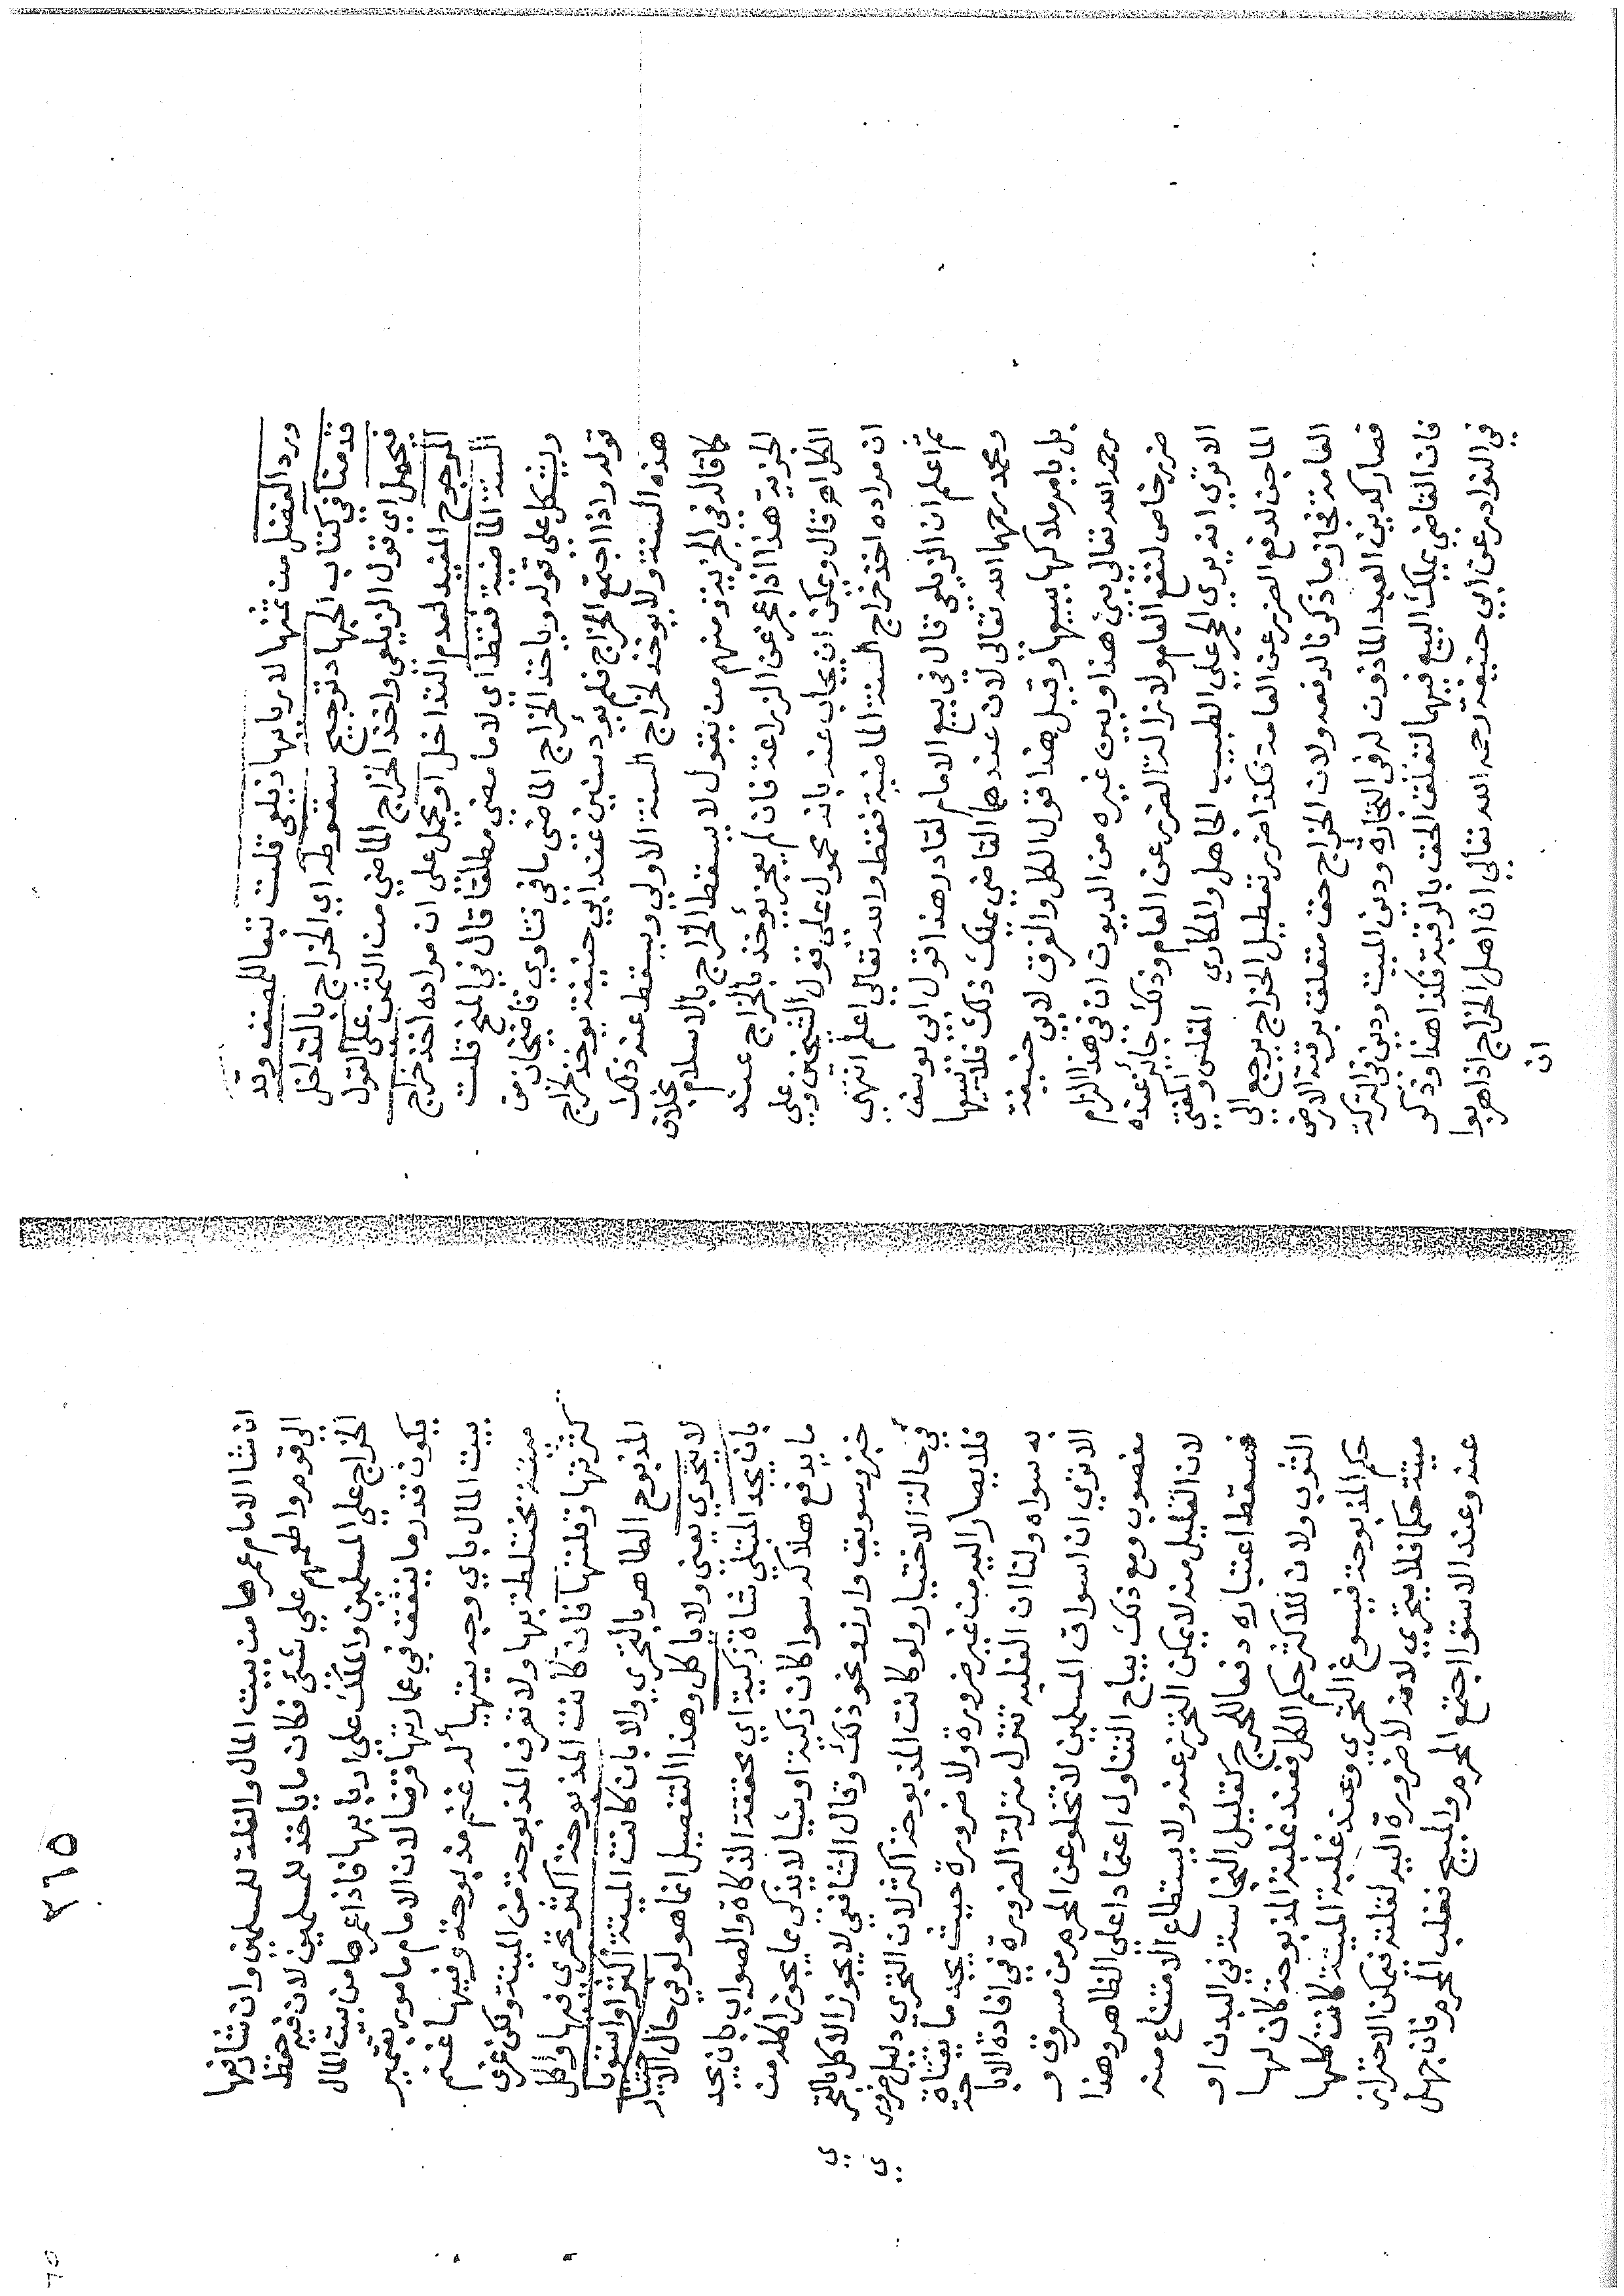 ورد الفضل من ثمنها لاربابها زيلعي قلت تبعا للمصنف وقد
قدمنا في كتاب الجهاد ترجيح سقوطه اي الخراج بالتداخل
فيحمل اي قول الزيلعي واخذ الخراج الماضي من الثمن على القول
المرجوح المفيد لعدم التداخل او يحمل على ان مراده اخذ خراج
السنة الماضية فقط اي لا ما مضى مطلقا قال في المنح قلت
ويشكل على قوله وياخذ الخراج الماضي ما في فتاوي قاضيخان من
قوله واذا اجتمع الخراج فلم يؤد سنين عند ابي حنيفة يوخذ لخراج
هذه السنة ولا يوخذ لخراج السنة الاولى ويسقط عنه ذلك
كما قال في الجزية ومنهم من يقول لا يسقط الخراج بالاسلام بخلاف
الجزية هذا اذا عجز عن الزراعة فان لم يعجز يؤخذ بالخراج عند
الكل اهر قال ويمكن ان يجاب عنه بانه محمول على قول الشيخين وعلى
ان مراده اخذ خراج السنة الماضية فقط والله تعالى اعلم انتهى
ثم اعلم ان الزيلعي قال في بيع الامام لقادر هذا قول ابي يوسف
ومحمد رحمهما الله تعالى لان عندهما القاضي يملك ذلك فلا يبيعها
بل يامر ملاكها ببيعها وقيل هذا قول الكل والفرق لابي حنيفة
رحمه الله تعالى بين هذا وبين غيره من الديون ان في هذا الزام
ضرر خاص لنفع العام ولازالة الضرر عن العام وذلك جائز عنده
الا ترى انه يرى الحجر على الطبيب الجاهل والمكاري المفلس والمفتي
الماجن لدفع الضرر عن العامة فكذا ضرر تعطيل الخراج يرجع الى
العامة فجاز ما ذكرنا لدفعه ولان الخراج حق متعلق برقبة الارض
فصار كدين العبد الماذون له في التجارة ودين الميت ودين في التركة
فان القاضي يملك البيع فيهما لتعلق الحق بالرقبة فكذا هذا وذكر
في النوادر عن ابي حنيفة رحمه الله تعالى ان اهل الخراج اذا هربوا
ان
٢٦٥
ان شا الامام عمرها من بيت المال والغلة للمسلمين وان شا دفعها
الى قوم واطعمهم على شئ فكان ما ياخذ للمسلمين لان فيه حفظ
الخراج على المسلمين والملك على اربابها فاذا عمرها من بيت المال
يكون قدر ما ينفق في عمارتها قرضا لان الامام مامور بتثمير
بيت المال باي وجه يتهيأ له غنم مذبوحة وفيها غنم
ميتة تختلطة بها ولا تعرف المذبوحة من الميتة ولكن عرف
كثرتها وقلتها فان كانت المذبوحة اكثر تحرى فيها واكل
المذبوح الطاهر بالتحري والا بان كانت الميتة اكثر او استويا
لا يتحرى يعني ولا ياكل وهذا التفصيل انما هو لو في حال الاختيار
بان يجد المبتلي شاة ذكية اي محققة الذكاة والصواب بان يجد
ما يدفع هلاكه سوا كان ذكية او شيا لا يذكى مما يجوز اكله من
خبز وسويق وارز ونحو ذلك وقال الشافعي لا يجوز الاكل بالتحري
في حالة الاختيار ولو كانت المذبوحة اكثر لان التحري دليل ضروري
فلا يصار اليه من غير ضرورة ولا ضرورة حيث يجد ما يقتات
به سواه ولنا ان الغلبة تنزل منزلة الضرورة في افادة الاباحة
الا ترى ان اسواق المسلمين لا تخلو عن المحرم من مسروق و
مغصوب ومع ذلك يباح التناول اعتمادا على الظاهر وهذا
لان القليل منه لا يمكن التحرز عنه ولا يستطاع الامتناع منه
فسقط اعتباره دفعا للحرج كقليل النجاسة في البدن او
الثوب ولان للاكثر حكم الكل فعند غلبة المذبوحة كان لها
حكم المذبوحة فيسوغ التحري وعند غلبة الميتة كانت كلها
ميتة حكما فلا يتحرى لانه لا ضرورة اليه لقلته فيمكن الاحتراز
عنه وعند الاستوا اجتمع المحرم والمبيح فغلب المحرم فان جهل